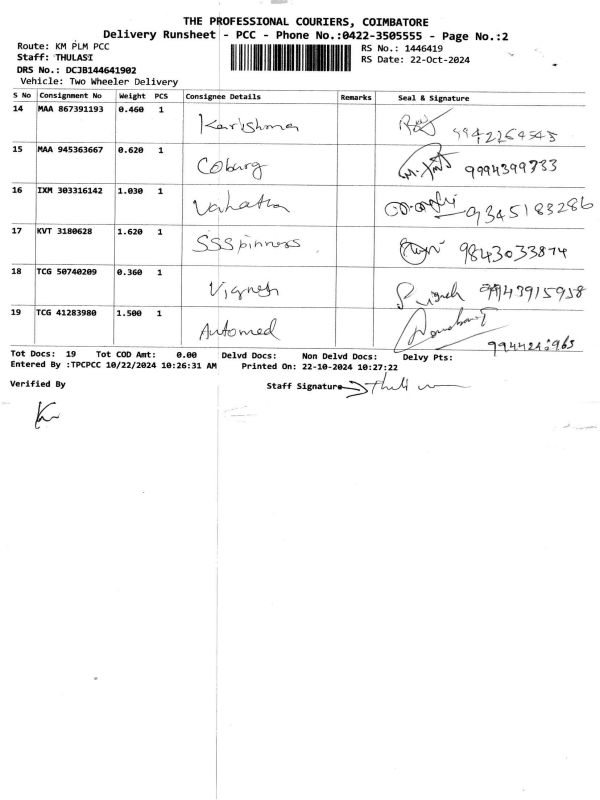 THE PROFESSIONAL COURIERS, COIMBATORE
Delivery Runsheet - PCC - Phone No.:0422-3505555 - Page No.:2
Route: KM PLM PCC
RS No.: 1446419
Staff: THULASI
RS Date: 22-Oct-2024
DRS No.: DCJB144641902
Vehicle: Two Wheeler Delivery
S No Consignment No Weight PCS Consignee Details Remarks Seal & Signature
14 MAA 867391193 0.460 1 Karishma
15 MAA 945363667 0.620 1 Coburg 9994399733
16 IXM 303316142 1.030 1 9345183286
17 KVT 3180628 1.620 1 SSSpinners 9843033874
18 TCG 50740209 0.360 1 Vignesh 9943915958
19 TCG 41283980 1.500 1 Automed
Tot Docs: 19 Tot COD Amt: 0.00 Delvd Docs: Non Delvd Docs: Delvy Pts:
Entered By :TPCPCC 10/22/2024 10:26:31 AM Printed On: 22-10-2024 10:27:22
Verified By Staff Signature